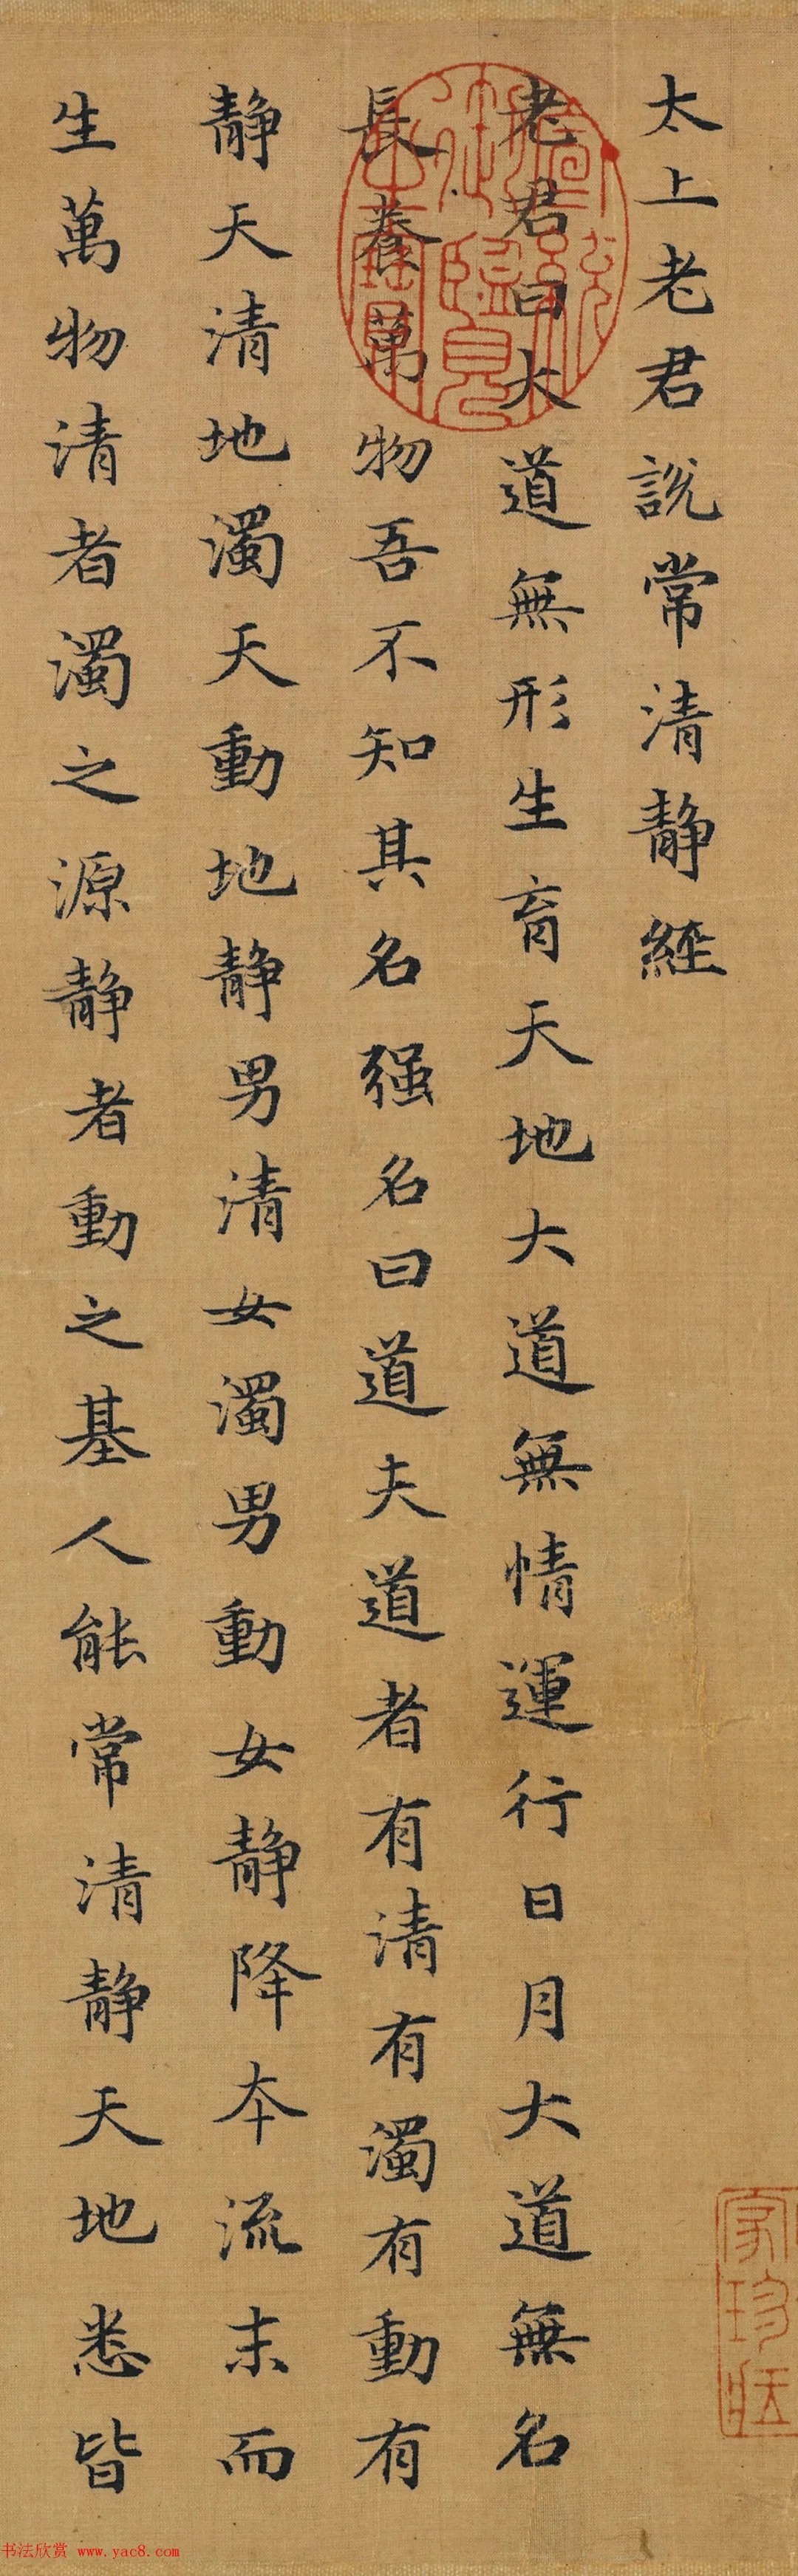 太上老君說常清静經
老君曰大道無形生育天地大道無情運行日月大道無名
長養萬物吾不知其名强名曰道夫道者有清有濁有動有
静天清地濁天動地静男清女濁男動女静降本流末而
生萬物清者濁之源静者動之基人能常清静天地悉皆
书法欣赏 www.yac8.com